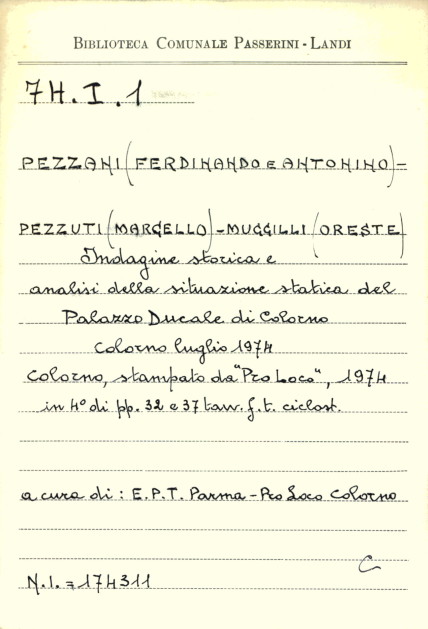 BIBLIOTECA COMUNALE PASSERINI-LANDI
7H.I.1
PEZZANI (FERDINANDO E ANTONINO) -
PEZZUTI (MARCELLO) - MUGGILLI (ORESTE)
Indagine storica e
analisi della situazione statica del
Palazzo Ducale di Colorno
Colorno luglio 1974
Colorno, stampato da "Pro Loco", 1974
in 4° di pp. 32 e 37 tavv. f.t. ciclost.
a cura di: E.P.T. Parma - Pro Loco Colorno
C
N.I. = 174311